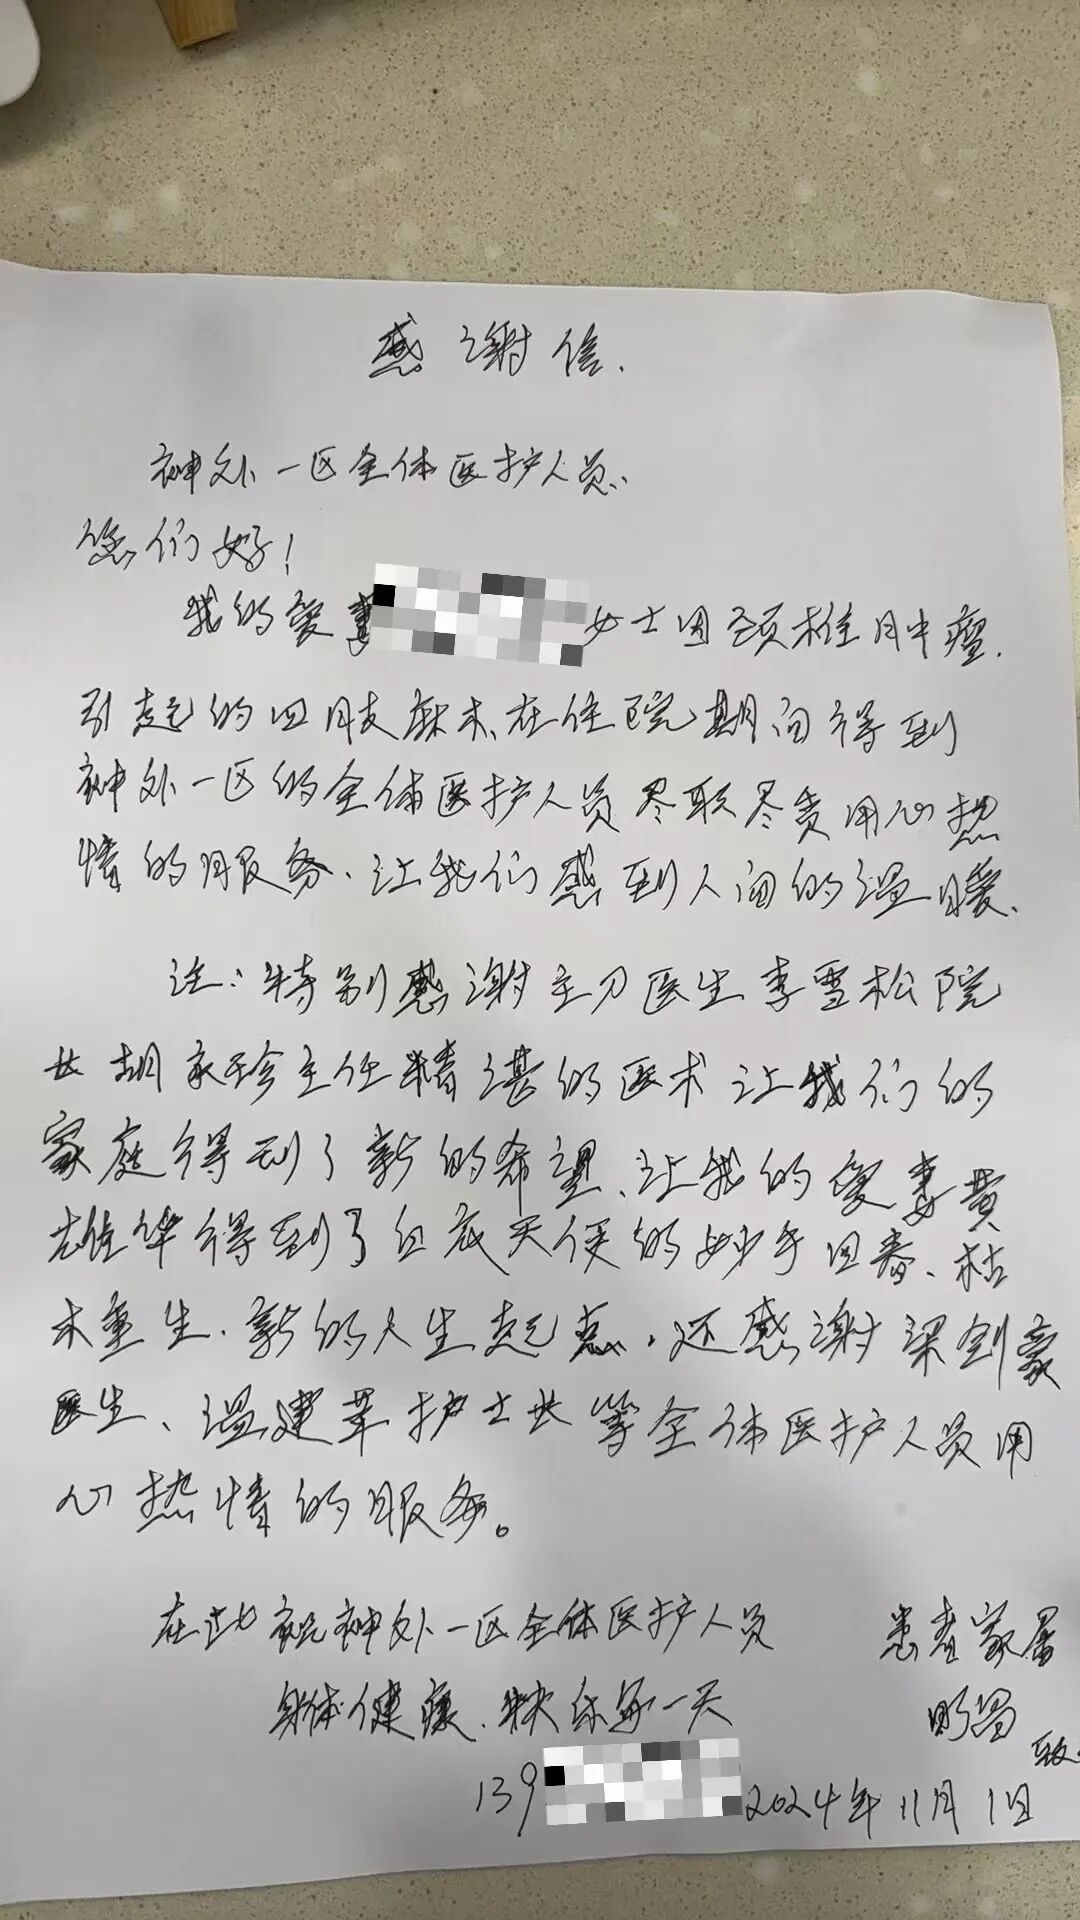 感谢信.
神外一区全体医护人员:
您们好!
我的爱妻 女士因颈椎肿瘤.
引起的四肢麻木、在住院期间得到
神外一区的全体医护人员尽职尽责用心热
情的服务、让我们感到人间的温暖.
注:特别感谢主刀医生李雪松院
长胡永珍主任精湛的医术让我们的
家庭得到了新的希望、让我的爱妻黄
雄华得到了白衣天使的妙手回春、枯
木重生.新的人生起点.还感谢梁剑豪
医生、温建苹护士长等全体医护人员用
心热情的服务。
在此祝神外一区全体医护人员
身体健康、快乐每一天
患者家属
139
2024年11月1日